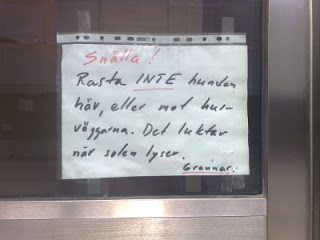 Snälla!
Rasta INTE hunden
här, eller mot hus-
väggarna. Det luktar
när solen lyser.
Grannar.